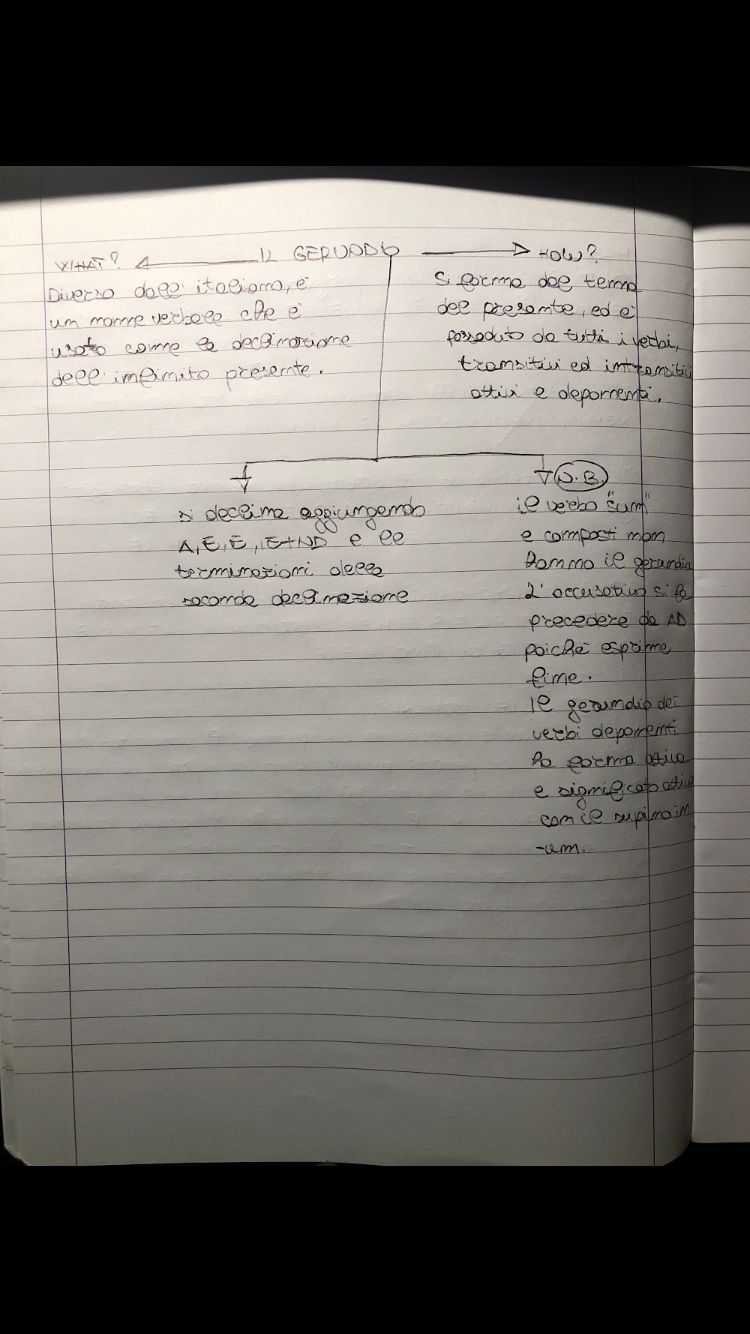 WHAT? IL GERUNDIO HOW?
Diverso dall'italiano, è
un nome verbale che è
usato come la declinazione
dell'infinito presente.
Si forma dal tema
del presente, ed è
posseduto da tutti i verbi,
transitivi ed intransitivi
attivi e deponenti.
si declina aggiungendo
A, E, E, IE+ND e le
terminazioni della
seconda declinazione
N.B
il verbo "sum"
e composti non
hanno il gerundio
L'accusativo si fa
precedere da AD
poichè esprime
fine.
Il gerundio dei
verbi deponenti
ha forma attiva
e significato attivo
con il supino in
-um.